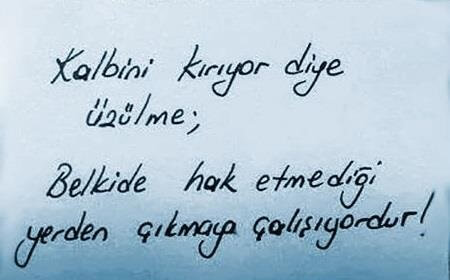 Kalbini kırıyor diye
üzülme;
Belkide hak etmediği
yerden çıkmaya çalışıyordur!